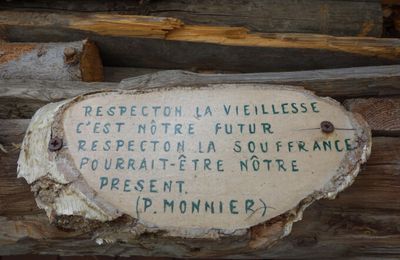 RESPECTON LA VIEILLESSE
C'EST NÔTRE FUTUR
RESPECTON LA SOUFFRANCE
POURRAIT-ÊTRE NÔTRE
PRÉSENT.
(P. MONNIER)